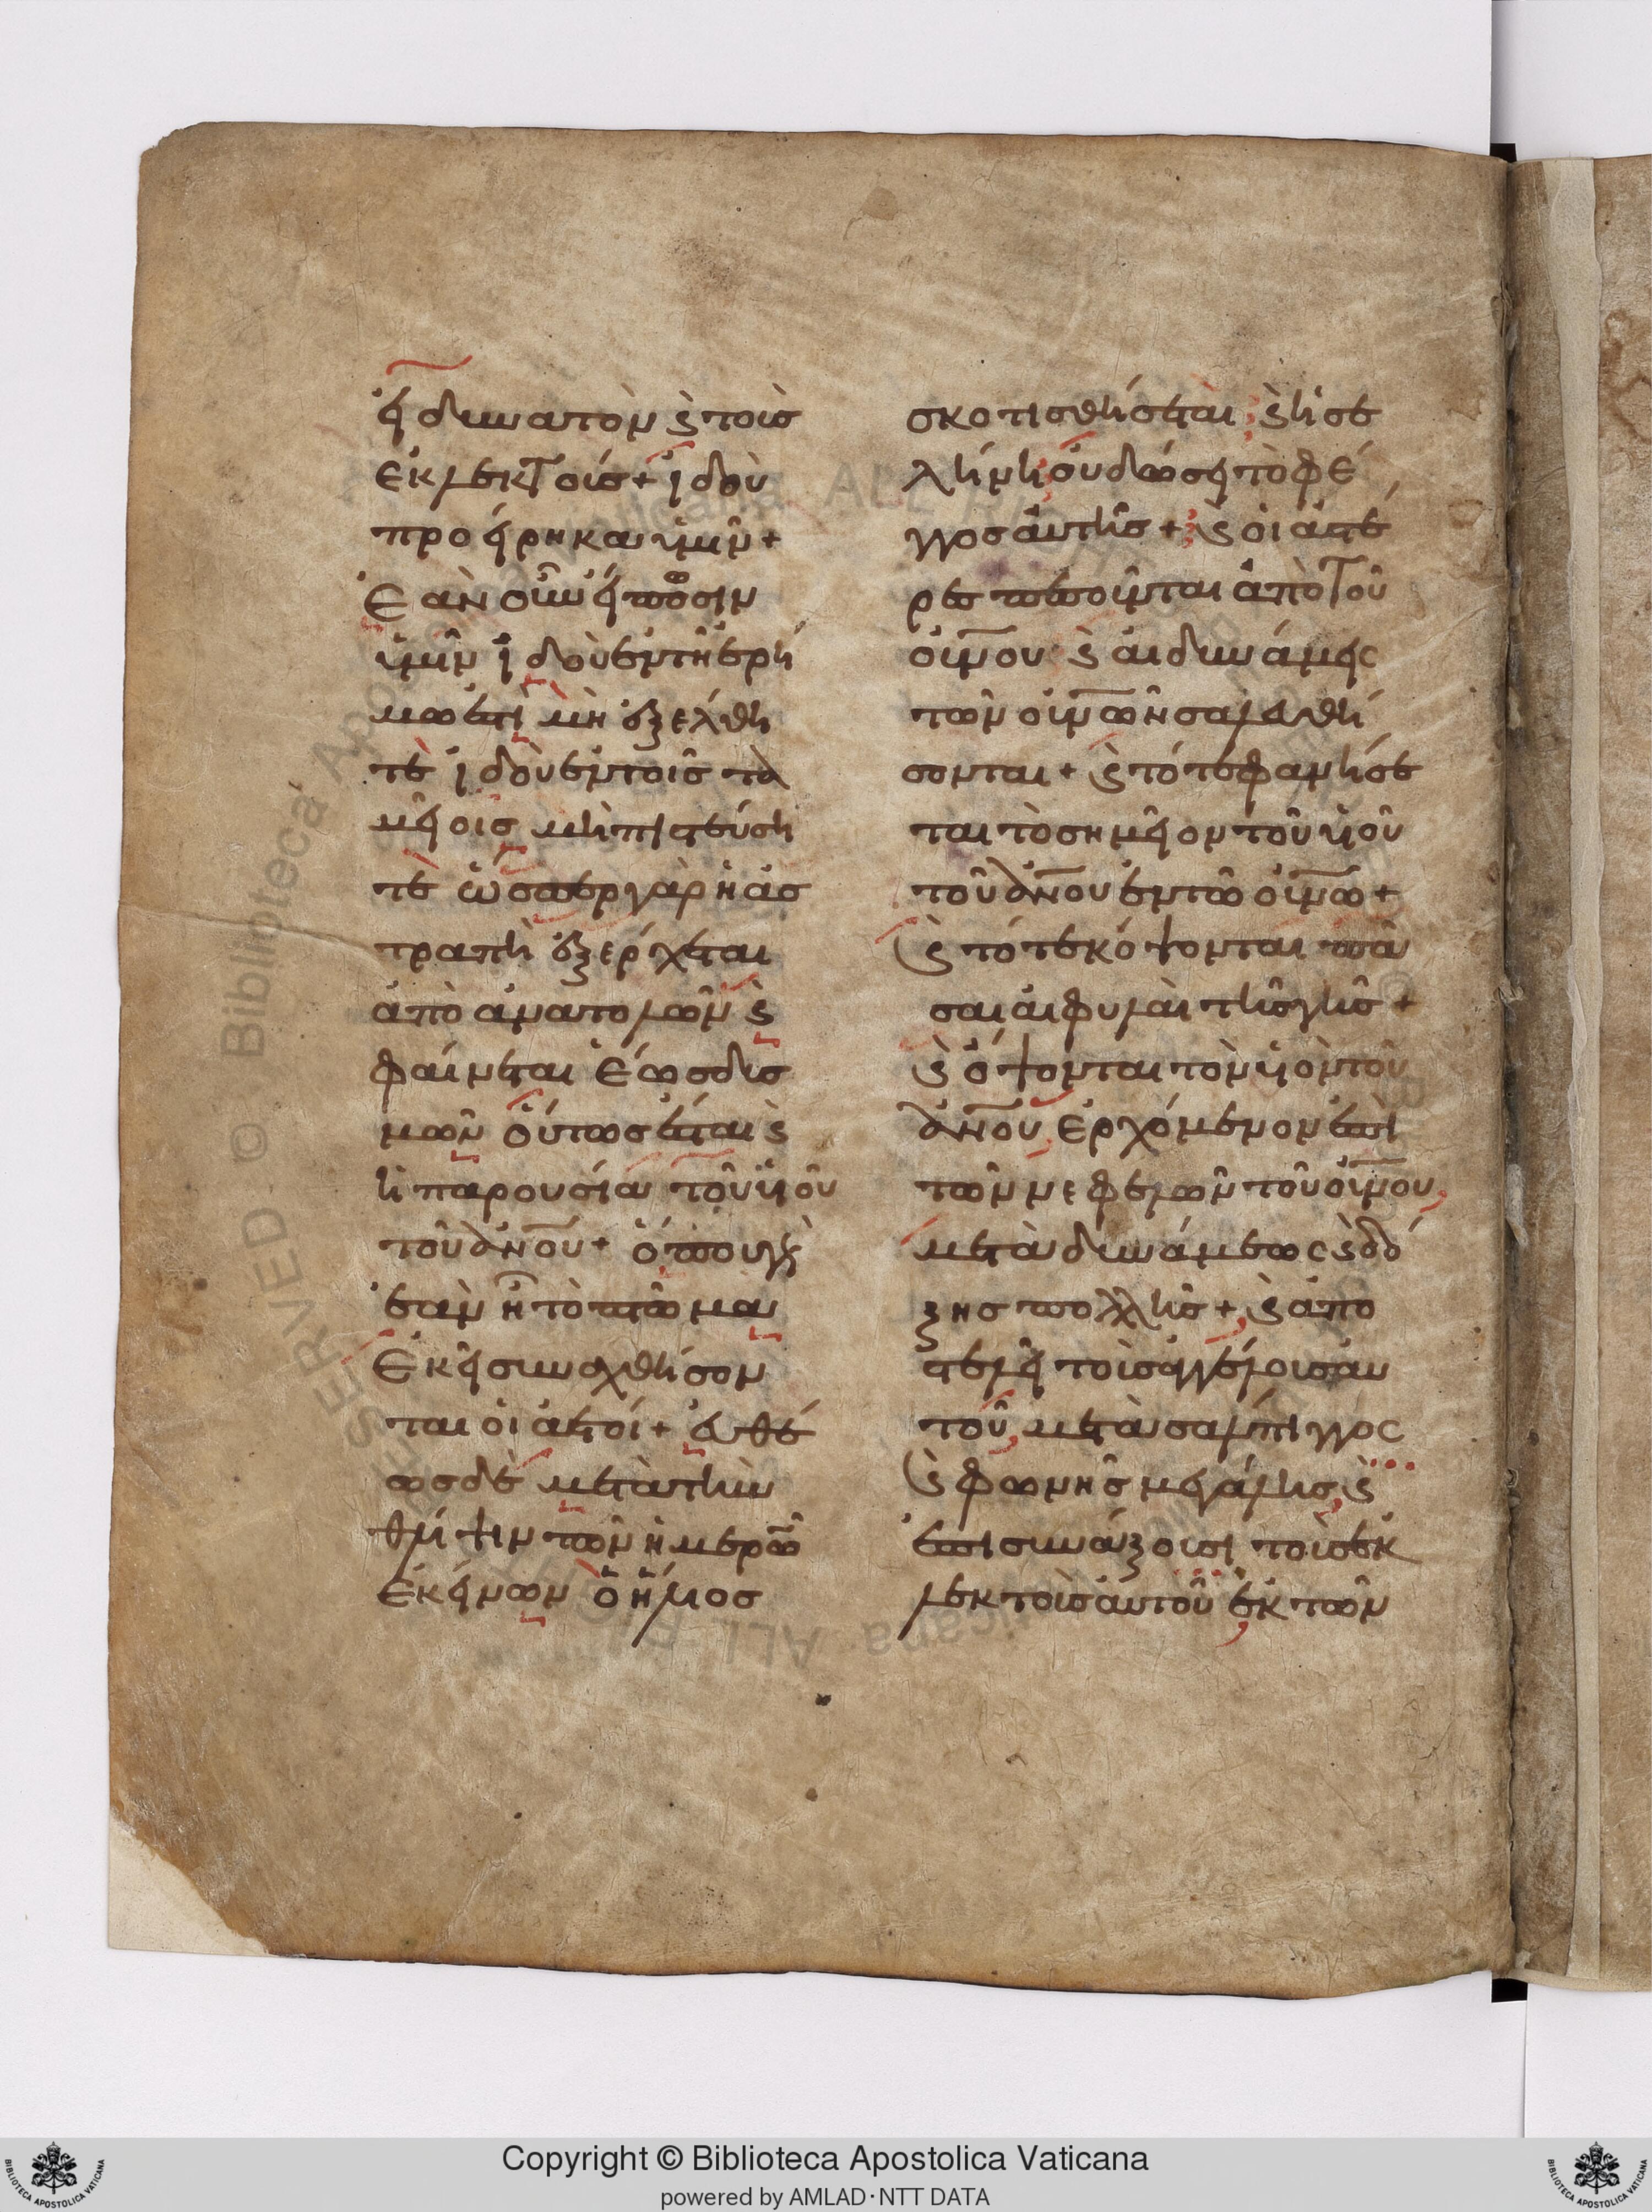 εἰ δυνατὸν ϗ τοὺσ
ἐκλεκτούσ+ ἰδοὺ
προείρηκα ὑμῖν+
Ἐὰν οὖν εἴπωσιν
ὑμῖν ἰδοὺ ἐν τῆ ἐρή
μω ἐστὶ μὴ ἐξέλθη
τὲ ἰδοὺ ἐν τοῖσ τα
μείοισ μὴ πιστεύση
τὲ ὥσπερ γὰρ ἡ ἀσ
τραπὴ ἐξέρχεται
ἀπὸ ἀνατολῶν ϗ
φαίνεται ἕωσ δυσ
μῶν οὕτωσ ἔσται ϗ
ἡ παρουσία τοῦ ὑιοῦ
τοῦ ἀν̅ου+ ὅπου γὰρ
ἐὰν ἦ τὸ πτῶμα
ἐκεῖ συναχθήσον
ται οἱ ἀετοί+ εὐθέ
ωσ δὲ μετὰ τὴν
θλίψιν τῶν ἡμερῶν
ἐκείνων ὁ ἥλιοσ
σκοτισθήσεται, ϗ ἡ σε
λήνη οὐ δώσει τὸ φέ
γγοσ αὐτῆσ+ ϗ οἱ ἀστέ
ρεσ πεσοῦνται ἀπὸ τοῦ
οὐν̅ου ϗ αἱ δυνάμεις
τῶν οὐν̅ῶν σαλευθή
σονται+ ϗ τότε φανήσε
ται τὸ σημεῖον τοῦ ὑιοῦ
τοῦ ἀν̅ου ἐν τῶ οὐν̅ω+
ϗ τότε κόψονται πᾶ
σαι αἱ φυλαὶ τῆσ γῆσ+
ϗ ὄψονται τὸν ὑιὸν τοῦ
ἀν̅ου ἐρχόμενον ἐπὶ
τῶν νεφελῶν τοῦ οὐν̅ου,
μετὰ δυνάμεως ϗ δό
ξησ πολλῆσ+, ϗ ἀπο
στελεῖ τοὺσ ἀγγέλουσ αὐ
τοῦ, μετὰ σαλπιγγος
ϗ φωνῆσ μεγάλησ, ϗ
ἐπισυνάξουσι τοὺσ ἐκ
λεκτοὺσ αὐτοῦ ἐκ τῶν
Copyright © Biblioteca Apostolica Vaticana
powered by AMLAD·NTT DATA